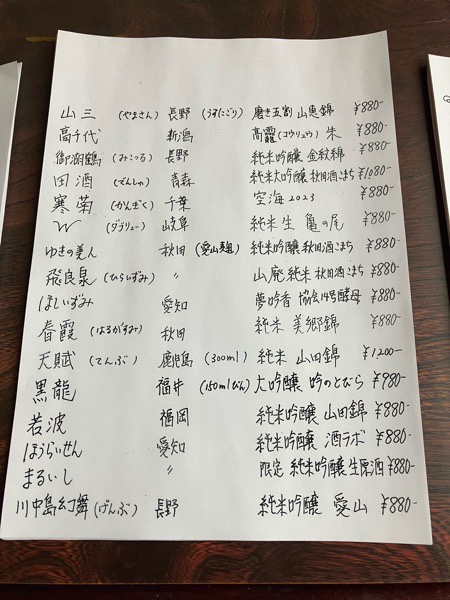 山三 (やまさん) 長野 (うすにごり) 磨き五割 山恵錦 ¥880-
高千代 新潟 髙龗(コウリュウ) 朱 ¥880-
御湖鶴 (みこつる) 長野 純米吟醸 金紋錦 ¥880-
田酒 (でんしゅ) 青森 純米大吟醸 秋田酒こまち ¥1080-
寒菊 (かんぎく) 千葉 空海 2023 ¥880-
W (ダブリュー) 岐阜 純米生 亀の尾 ¥880-
ゆきの美人 秋田 (愛山麹) 純米吟醸 秋田酒こまち ¥880-
飛良泉 (ひらいずみ) 〃 山廃純米 秋田酒こまち ¥880-
ほしいずみ 愛知 夢吟香 協会14号酵母 ¥880-
春霞 (はるがすみ) 秋田 純米 美郷錦 ¥880-
天賦 (てんぶ) 鹿児島 (300ml) 純米 山田錦 ¥1200-
黒龍 福井 (150mlびん) 大吟醸 吟のとびら ¥980-
若波 福岡 純米吟醸 山田錦 ¥880-
ほうらいせん 愛知 純米吟醸 酒ラボ ¥880-
まるいし 〃 限定 純米吟醸生原酒 ¥880-
川中島幻舞 (げんぶ) 長野 純米吟醸 愛山 ¥880-